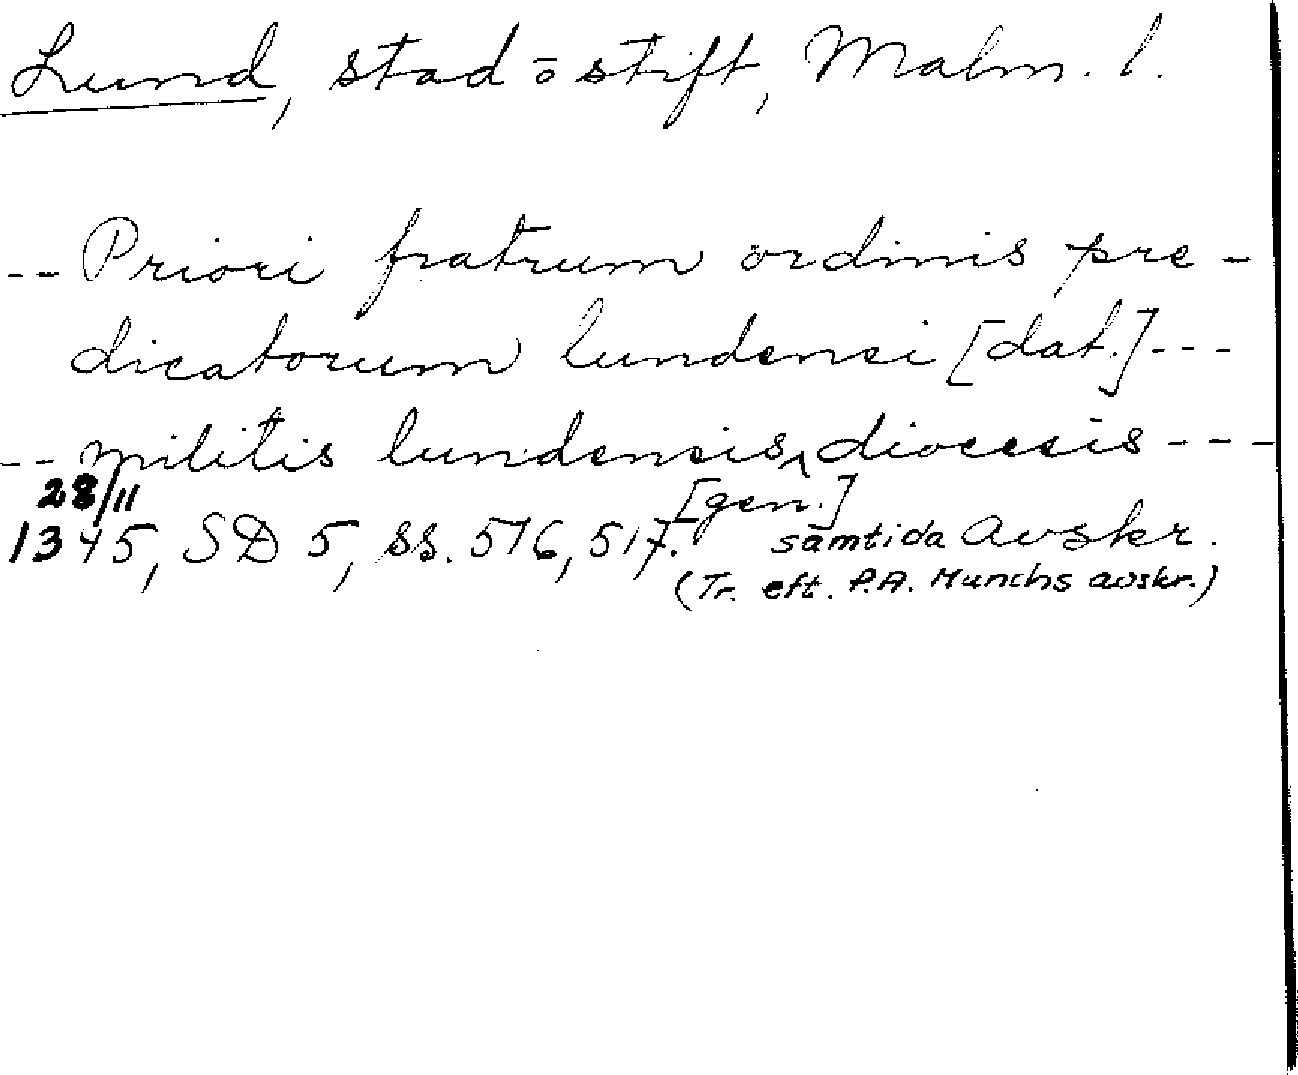 Lund, stad o stift, Malm. l.
-- Priori fratrum ordinis pre-
dicatorum lundensi [dat.] ---
-- militis lundensis ^ diocesis ---
[gen.]
28/11
1345, SD 5, ss. 516, 517. samtida Avskr.
(Tr. eft. P.A. Munchs avskr.)